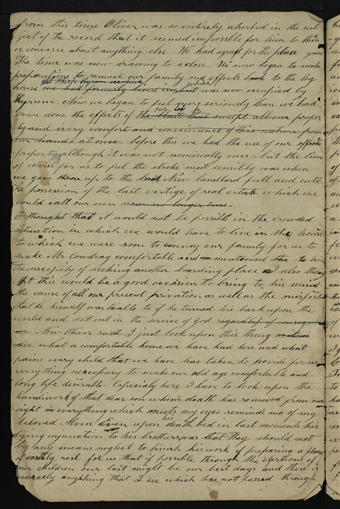 from this time Oliver was so entirely absorbed in the sub
ject of the record that it seemed impossible for him to think
or converse about anything else. We had agreed for the place
The time was now drawing to a close. We now began to make
preparations to remove our family and effects back to the log
house we had formerly lived in but was now occupied by
Hyrum. Now we began to feel more seriously than we had
ever done the effects of the that swept all our proper
ty and every comfort and convenience of this nature from
our hands at once before this we had the use of our
property although it was not nominally ours but the time
had come for us to feel the stroke most sensibly was when
we gave up to the New landlord full and entire
possession of the last vestige of real estate which we
could call our own
I thought that it would not be possible in the crowded
situation in which we would have to live in the house
to which we were soon to convey our family for us to
make Mr Cowdray comfortable and mentioned to him
the necessity of seeking another boarding place and also thou
ght this would be a good occasion to bring to his mind
the cause of all our present privation as well as the misfortunes
that he himself was liable to if he turned his back upon the
world and set out in the service of god
Now Oliver said I just look upon this thing
see what a comfortable home we have had here and what
pains every child that we have has taken to provide for us
everything necessary to make our old age comfortable and
long life desirable. Especialy here I have to look upon the
handiwork of that dear son whom death has removed from our
sight in everything which meets my eyes reminds me of my
beloved Alvin Even upon his death bed in last moments his
dying injunction to his brothers was that They should not
by any means neglect to finish his work of preparing a place
of earthly rest for us that if possible through the exertions of
our children our last might be our best days and there is
scarcely anything that I see which has not passed through